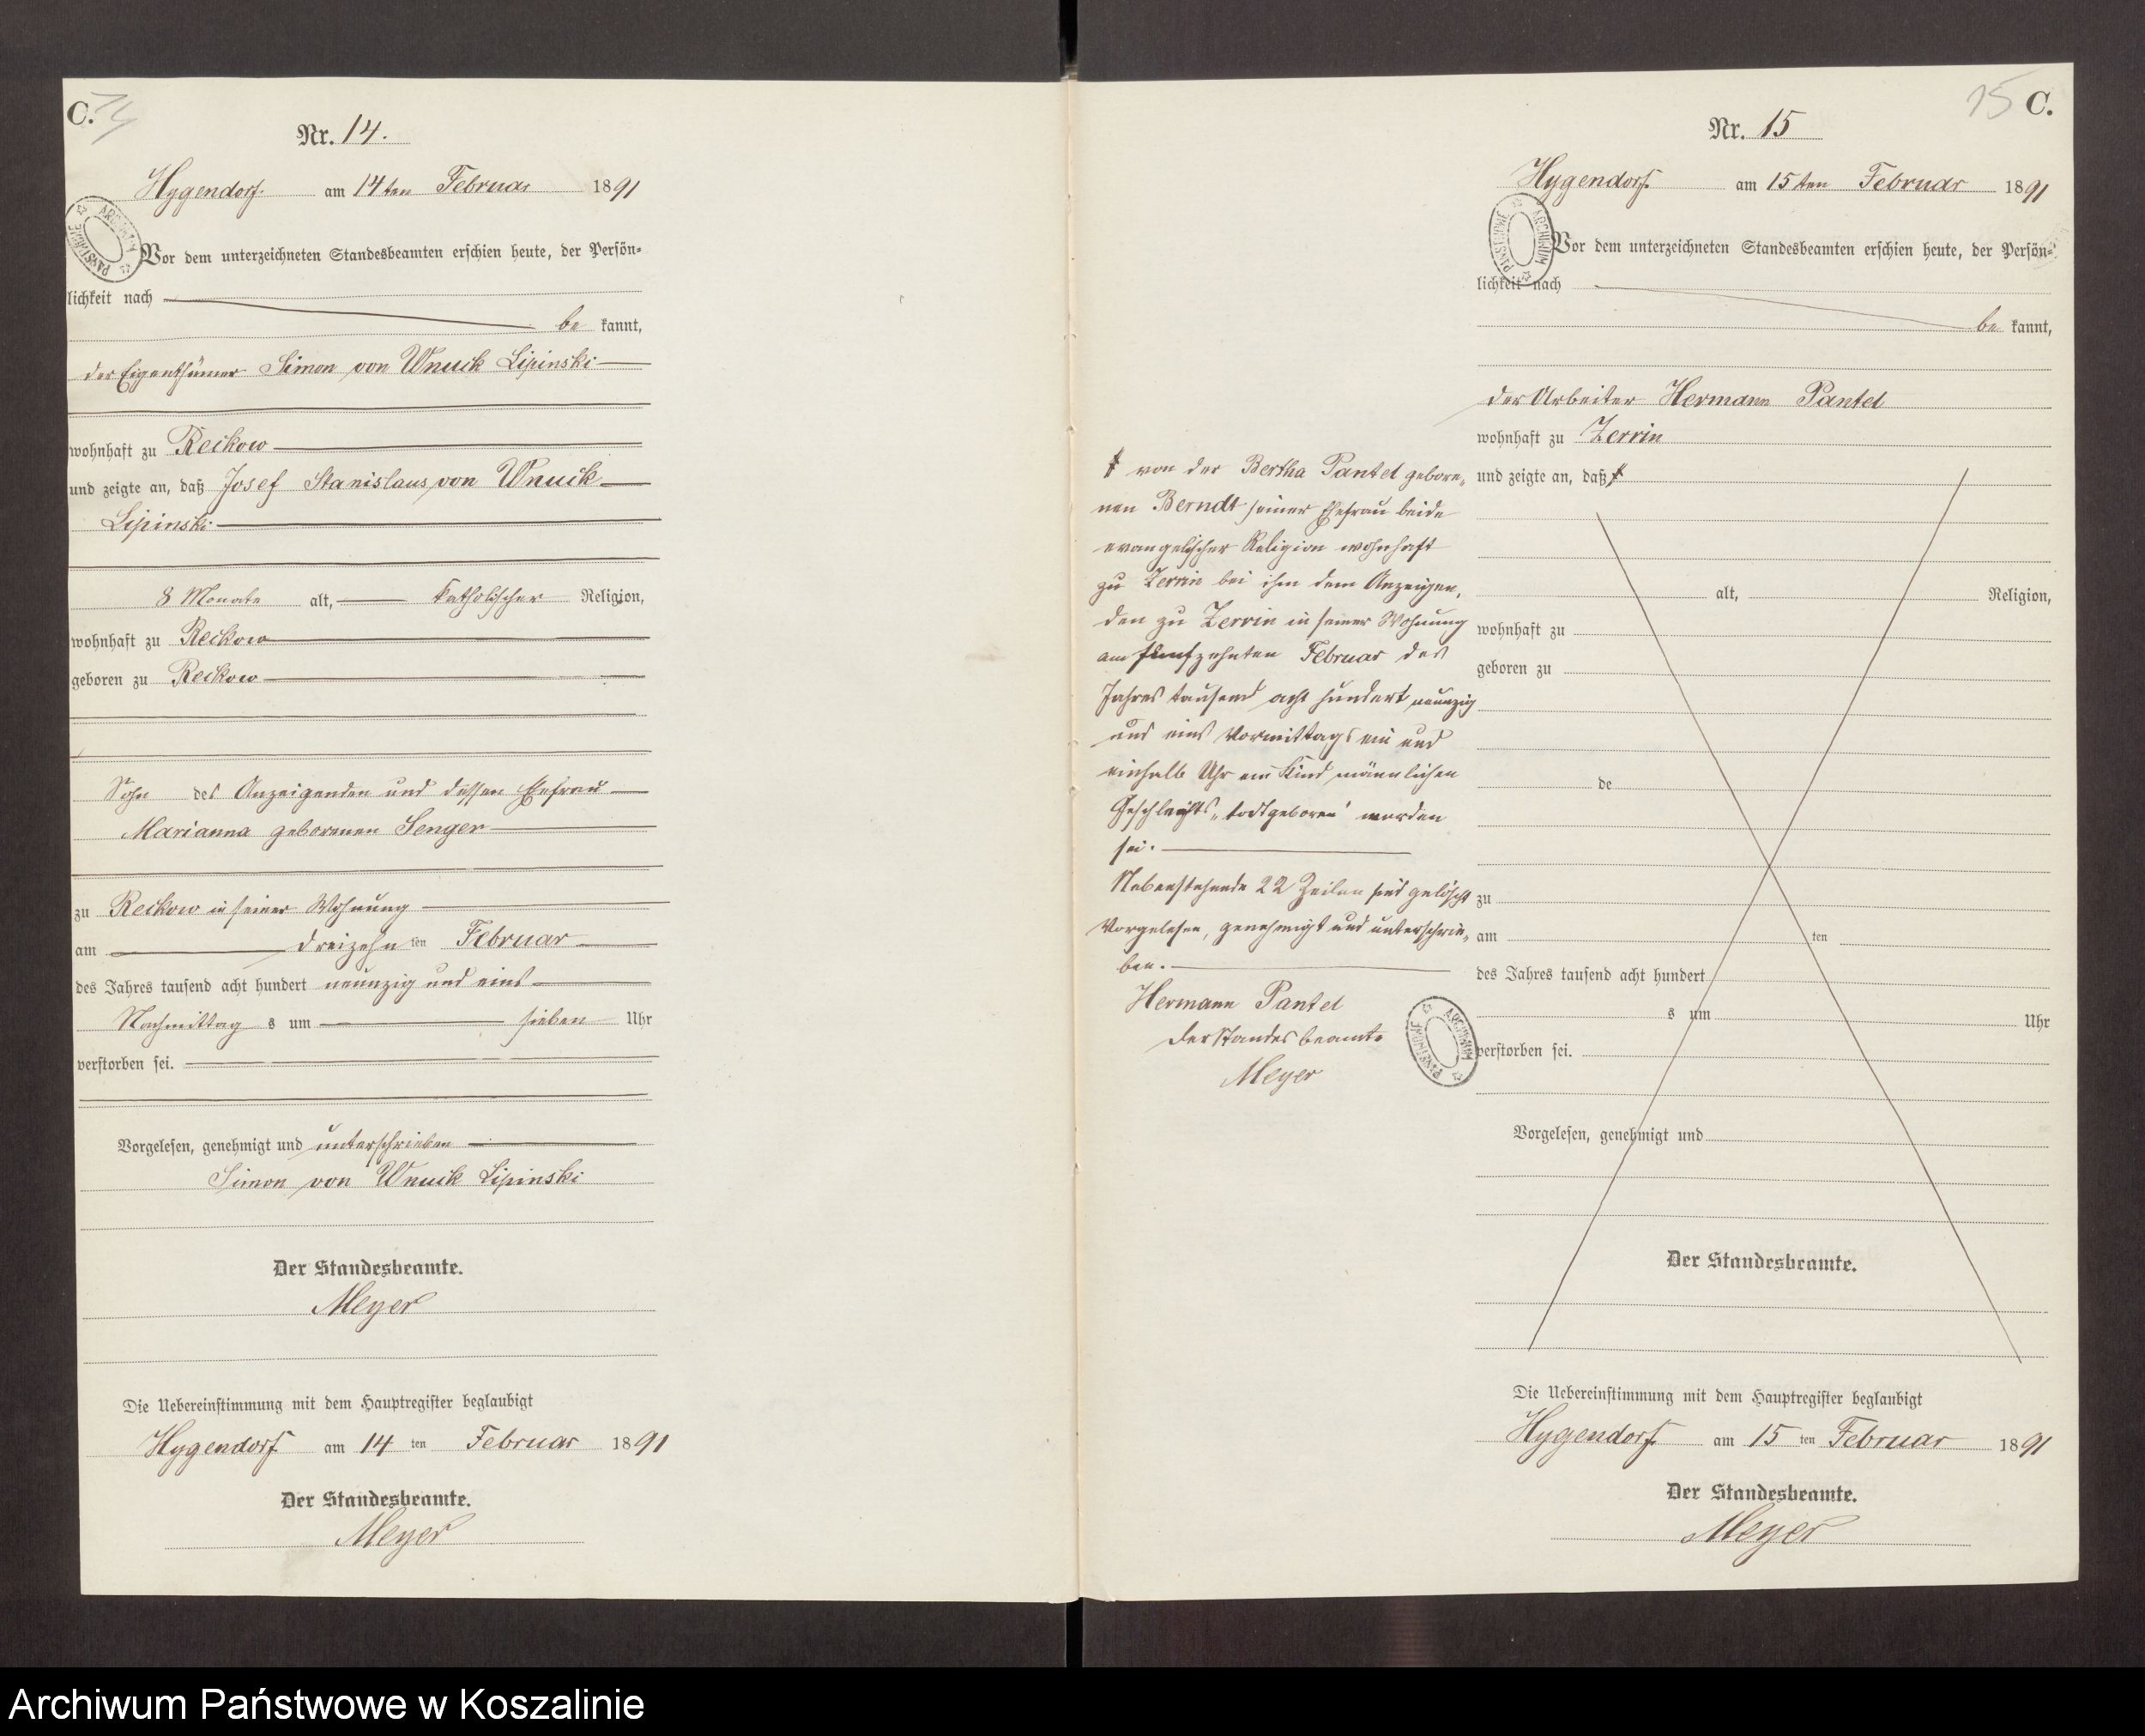 C.
Nr. 14.
Hygendorf am 14ten Februar 1891
Vor dem unterzeichneten Standesbeamten erschien heute, der Persön-
lichkeit nach
be kannt,
der Eigenthümer Simon von Wnuck Lipinski
wohnhaft zu Reckow
und zeigte an, daß Josef Stanislaus von Wnuck
Lipinski
8 Monate alt, katholischer Religion,
wohnhaft zu Reckow
geboren zu Reckow
Sohn des Anzeigenden und dessen Ehefrau
Marianna geborenen Senger
zu Reckow in seiner Wohnung
am dreizehn ten Februar
des Jahres tausend acht hundert neunzig und eins
Nachmittag s um sieben Uhr
verstorben sei.
Vorgelesen, genehmigt und unterschrieben
Simon von Wnuck Lipinski
Der Standesbeamte.
Meyer
Die Uebereinstimmung mit dem Hauptregister beglaubigt
Hygendorf am 14 ten Februar 1891
Der Standesbeamte.
Meyer
15 C.
Nr. 15
Hygendorf am 15ten Februar 1891
Vor dem unterzeichneten Standesbeamten erschien heute, der Persön-
lichkeit nach
be kannt,
der Arbeiter Hermann Pantel
wohnhaft zu Zerrin
und zeigte an, daß
von der Bertha Pantel gebore-
nen Berndt seiner Ehefrau beide
evangelischer Religion wohnhaft
zu Zerrin bei ihm dem Anzeigen-
den zu Zerrin in seiner Wohnung
am fünfzehnten Februar des
Jahres tausend acht hundert neunzig
und eins Vormittags ein und
einhalb Uhr ein Kind männlichen
Geschlechts „todtgeboren" worden
sei.
Nebenstehende 22 Zeilen sind gelöscht
Vorgelesen, genehmigt und unterschrie-
ben.
Hermann Pantel
Der Standesbeamte
Meyer
alt, Religion,
wohnhaft zu
geboren zu
de
zu
am ten
des Jahres tausend acht hundert
s um Uhr
verstorben sei.
Vorgelesen, genehmigt und
Der Standesbeamte.
Die Uebereinstimmung mit dem Hauptregister beglaubigt
Hygendorf am 15 ten Februar 1891
Der Standesbeamte.
Meyer
ARCHIWUM PAŃSTWOWE
ARCHIWUM PAŃSTWOWE
ARCHIWUM PAŃSTWOWE
Archiwum Państwowe w Koszalinie